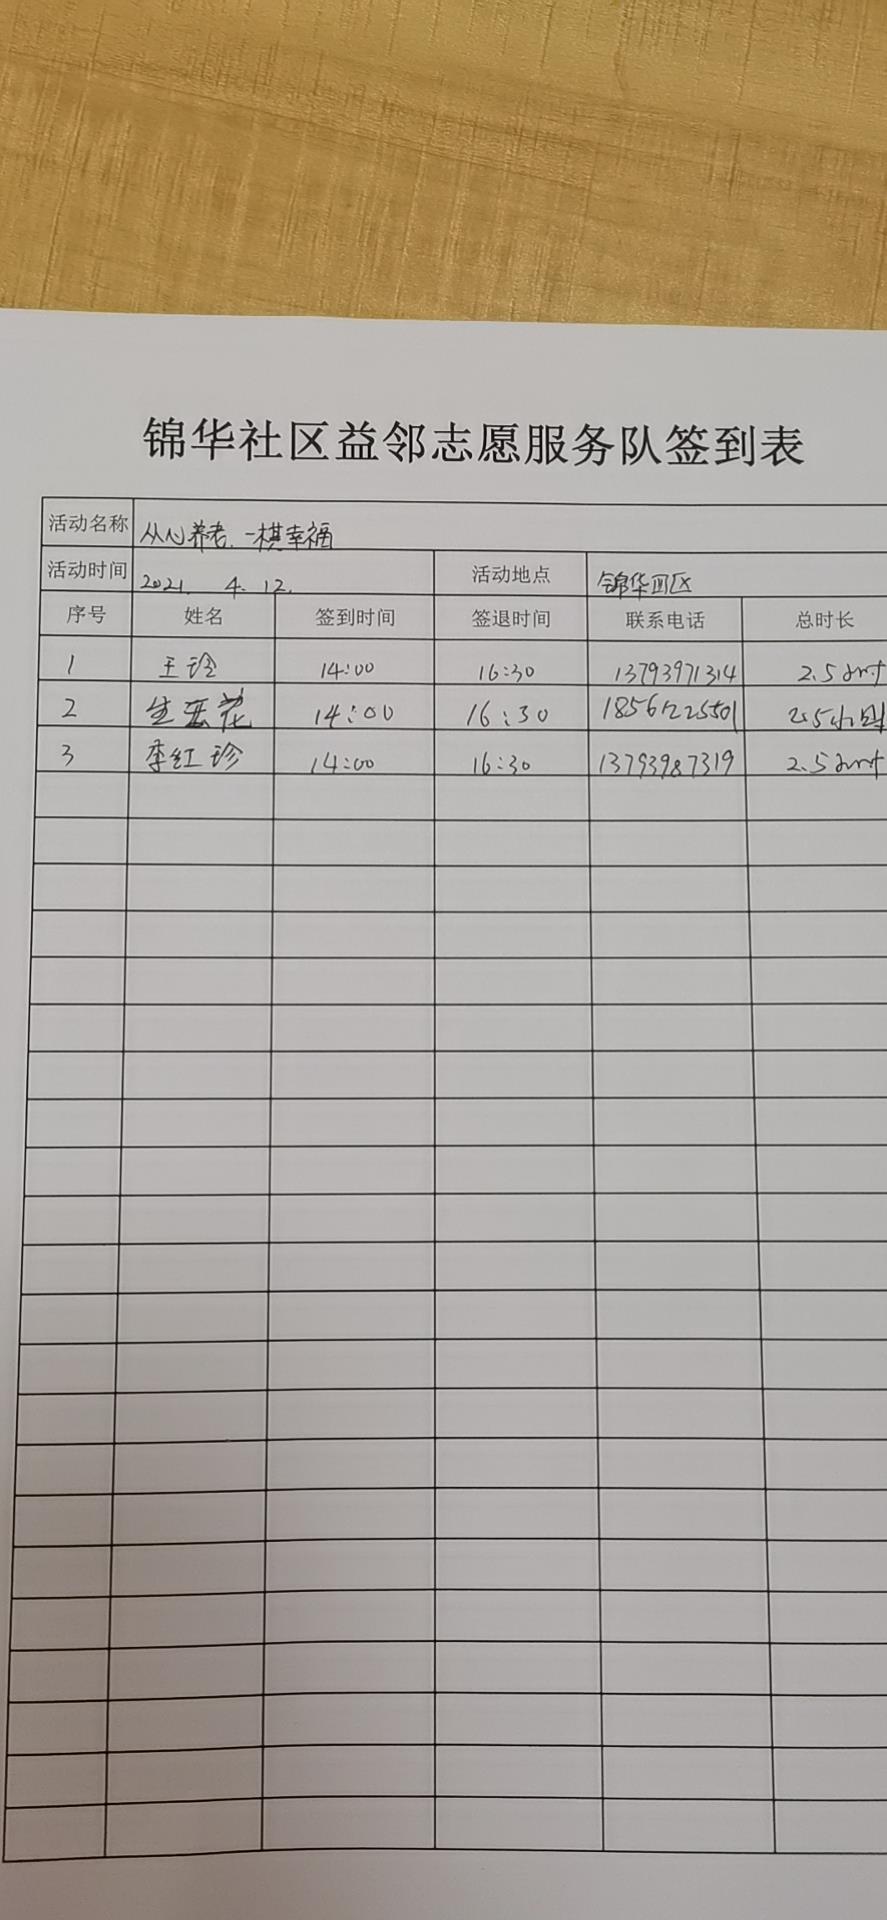 锦华社区益邻志愿服务队签到表
活动名称 从心养老、一棋幸福
活动时间 2021. 4. 12. 活动地点 锦华四区
序号 姓名 签到时间 签退时间 联系电话 总时长
1 王玲 14:00 16:30 13793971314 2.5
2 14:00 16:30 18561225501 2.5小时
3 李红珍 14:00 16:30 13793987319 2.5